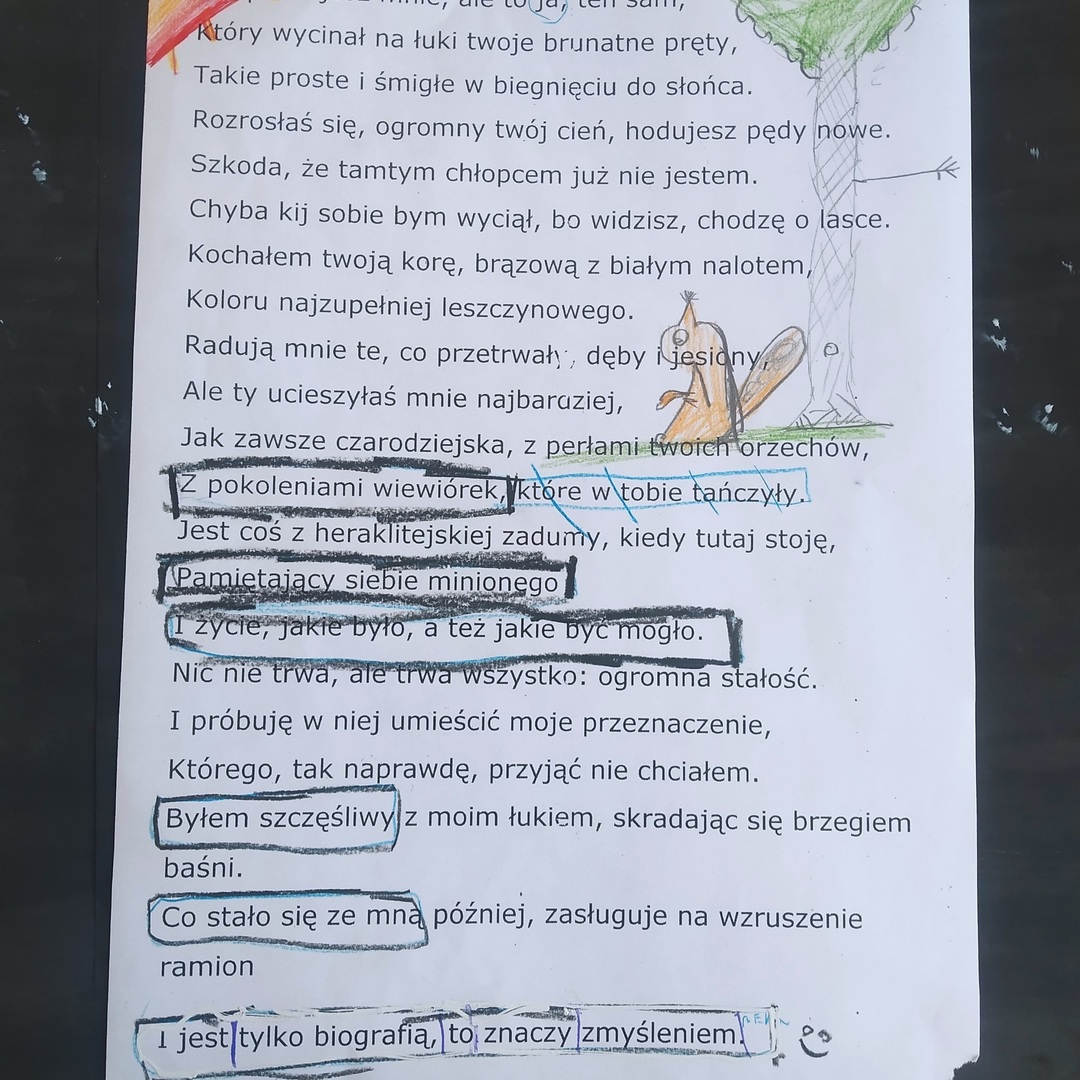 mnie, ale to ja, ten sam,
Który wycinał na łuki twoje brunatne pręty,
Takie proste i śmigłe w biegnięciu do słońca.
Rozrosłaś się, ogromny twój cień, hodujesz pędy nowe.
Szkoda, że tamtym chłopcem już nie jestem.
Chyba kij sobie bym wyciął, bo widzisz, chodzę o lasce.
Kochałem twoją korę, brązową z białym nalotem,
Koloru najzupełniej leszczynowego.
Radują mnie te, co przetrwały, dęby i jesiony,
Ale ty ucieszyłaś mnie najbardziej,
Jak zawsze czarodziejska, z perłami twoich orzechów,
Z pokoleniami wiewiórek, które w tobie tańczyły.
Jest coś z heraklitejskiej zadumy, kiedy tutaj stoję,
Pamiętający siebie minionego
I życie, jakie było, a też jakie być mogło.
Nic nie trwa, ale trwa wszystko: ogromna stałość.
I próbuję w niej umieścić moje przeznaczenie,
Którego, tak naprawdę, przyjąć nie chciałem.
Byłem szczęśliwy z moim łukiem, skradając się brzegiem
baśni.
Co stało się ze mną później, zasługuje na wzruszenie
ramion
I jest tylko biografią, to znaczy zmyśleniem.